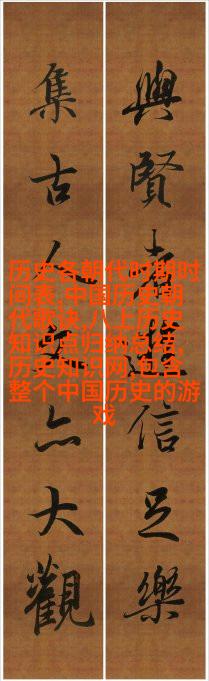 與賢者遊信足樂
集古人文亦大觀
历史各朝代时期时
间表,中国历史朝
代歌诀,八上历史
知识点归纳总结,
历史知识网,包含
整个中国历史的游
戏